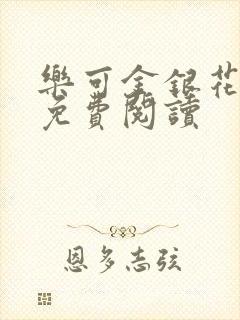 樂可金銀花
免費閱讀
恩多志弦